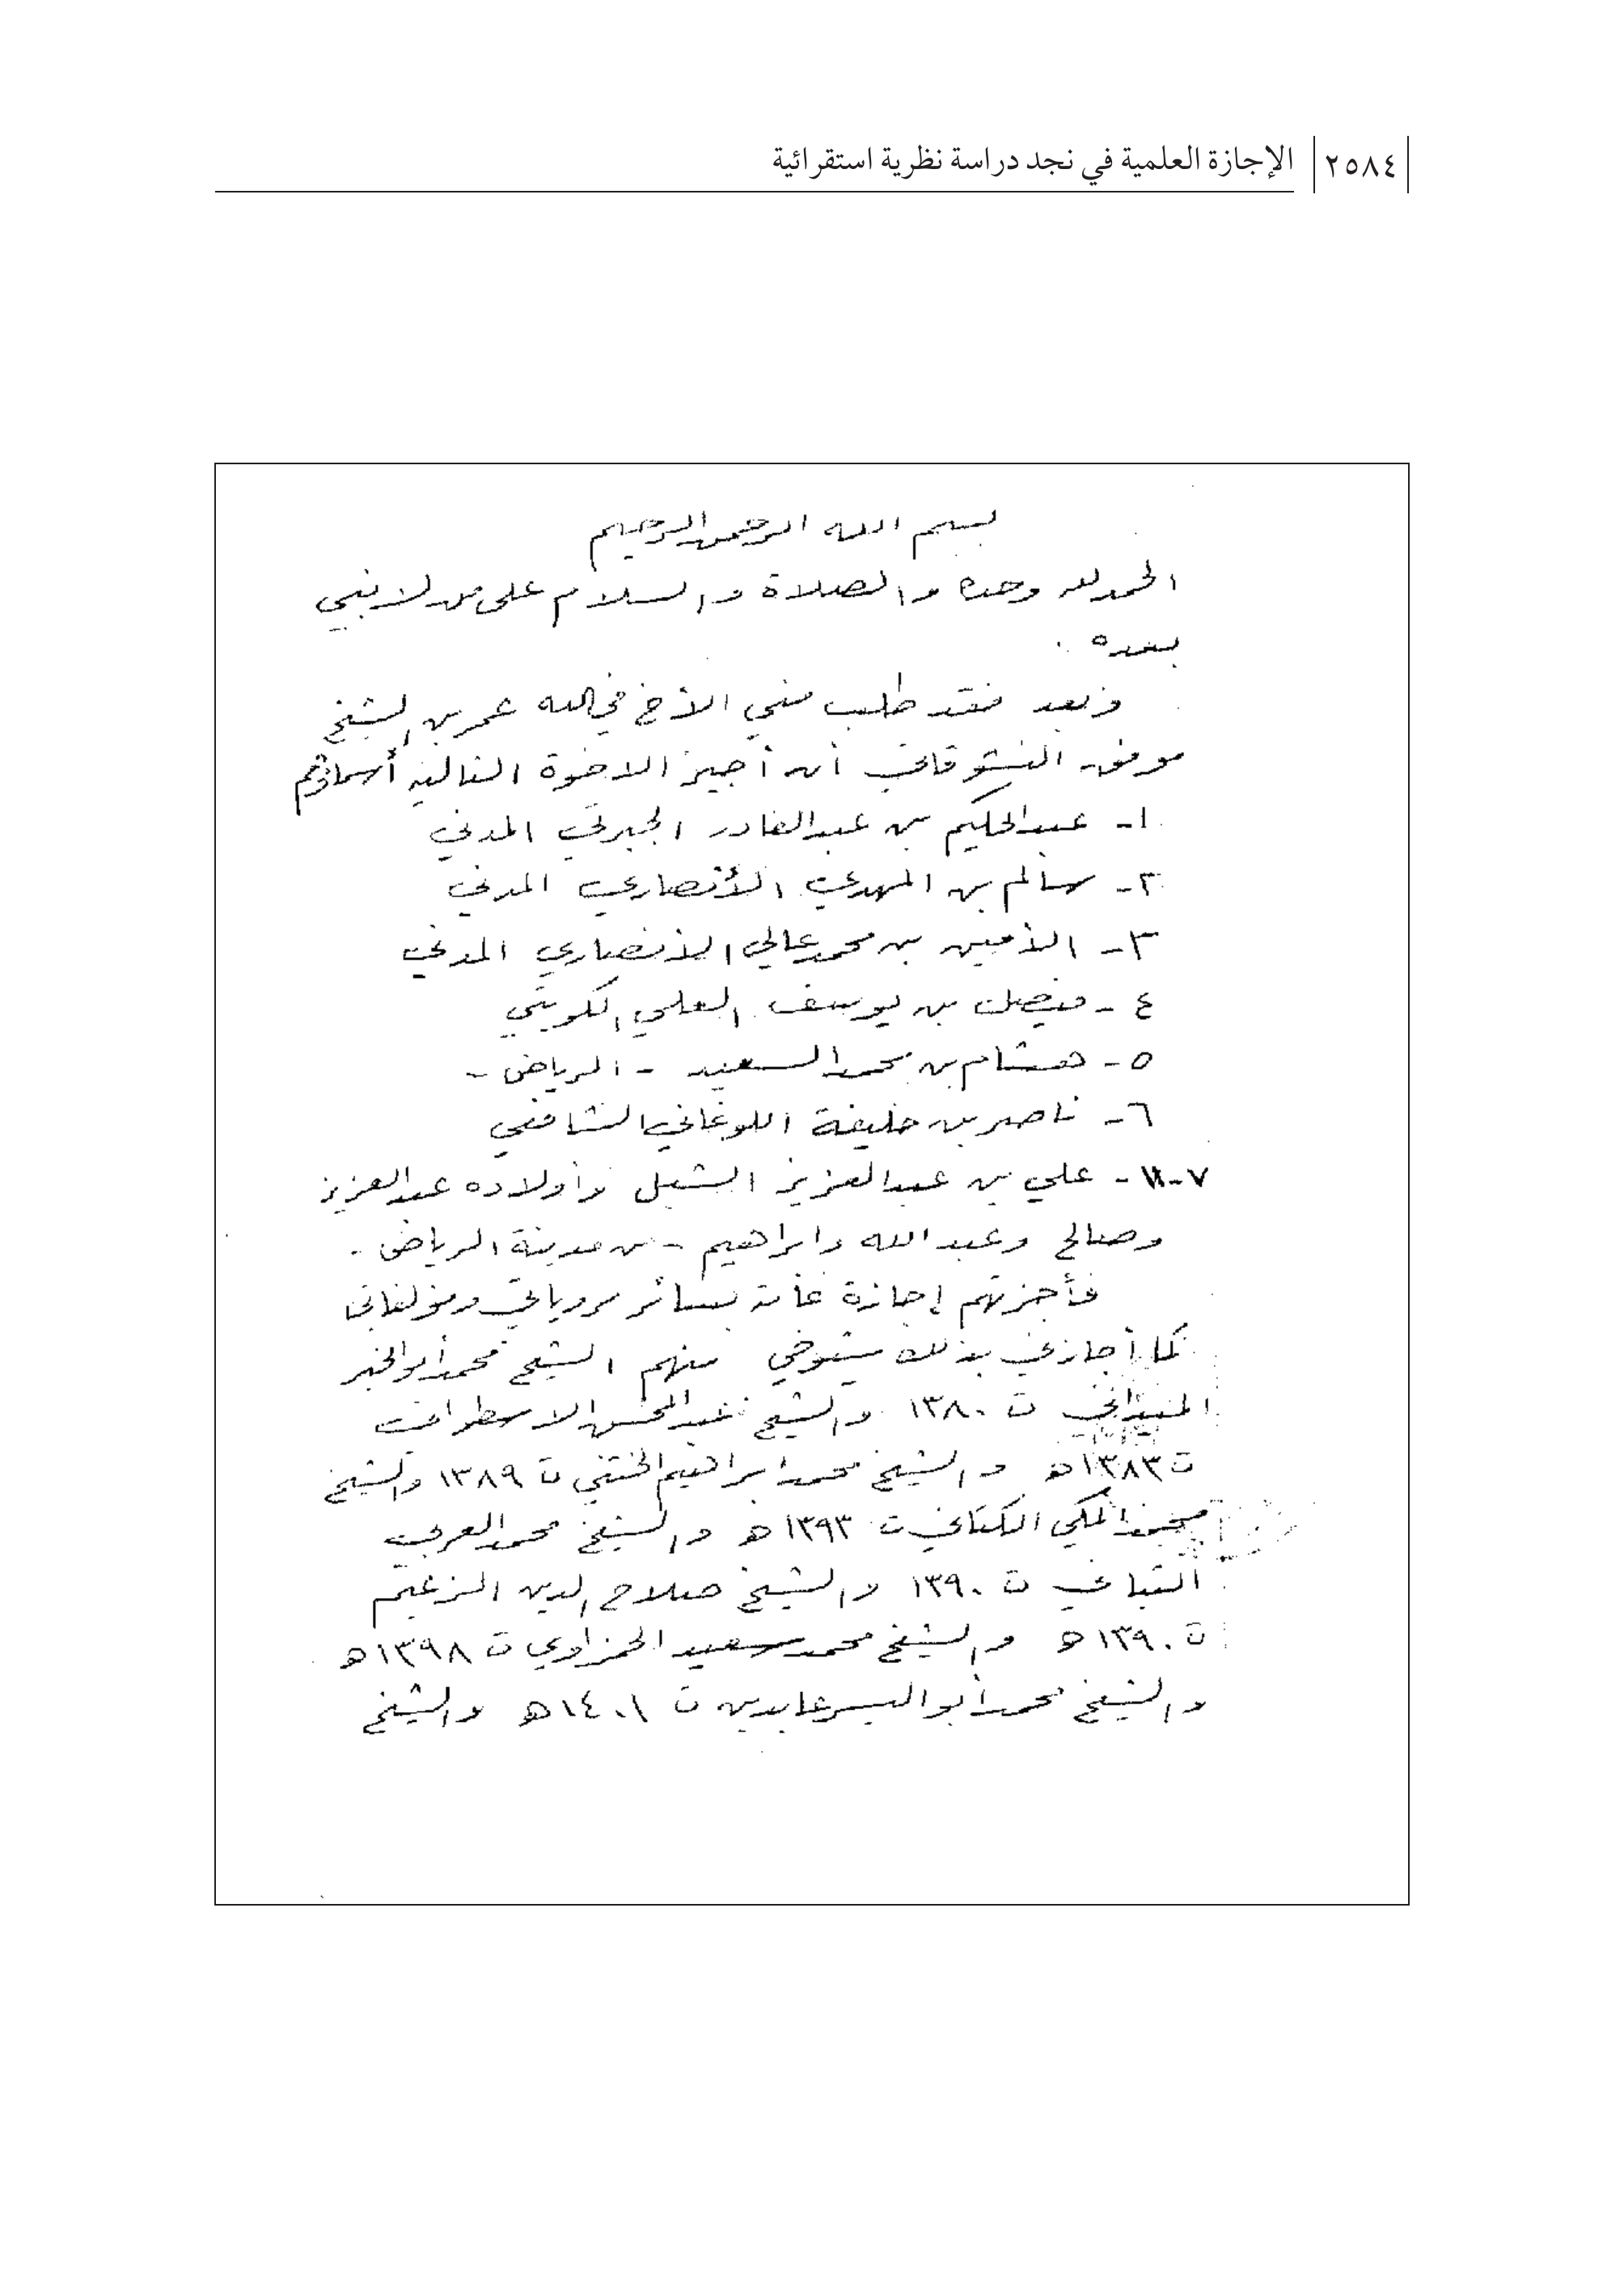 ٢٥٨٤ الإجازة العلمية في نجد دراسة نظرية استقرائية
بسم الله الرحمن الرحيم
الحمد لله وحده والصلاة والسلام على من لا نبي
بعده .
وبعد فقد طلب مني الأخ في الله عمر بن الشيخ
موفق النشوقاتي أن أجيز الاخوة التالية أسماؤهم
١- عبد الحكيم بن عبد القادر الجبرتي المدني
٢- سالم بن المهدي الأنصاري المدني
٣- الأمين بن محمد عالي الأنصاري المدني
٤- فيصل بن يوسف العلي الكويتي
٥- هشام بن محمد السعيد - الرياض -
٦- ناصر بن خليفة اللوغاني الشافعي
٧-١١- علي بن عبد العزيز الشبل وأولاده عبد العزيز
وصالح وعبد الله وابراهيم - من مدينة الرياض -
فأجزتهم إجازة عامة بسائر مروياتي ومؤلفاتي
كما أجازني بذلك شيوخي منهم الشيخ محمد أبو الخير
الميداني ت ١٣٨٠ والشيخ عبد المحسن الاسطواني
ت ١٣٨٣ هـ والشيخ محمد ابراهيم الختني ت ١٣٨٩ والشيخ
محمد المكي الكتاني ت ١٣٩٣ هـ والشيخ محمد العربي
التباني ت ١٣٩٠ والشيخ صلاح الدين الزعيم
ت ١٣٩٠ هـ والشيخ محمد سعيد الحمزاوي ت ١٣٩٨ هـ
والشيخ محمد أبو اليسر عابدين ت ١٤٠١ هـ والشيخ